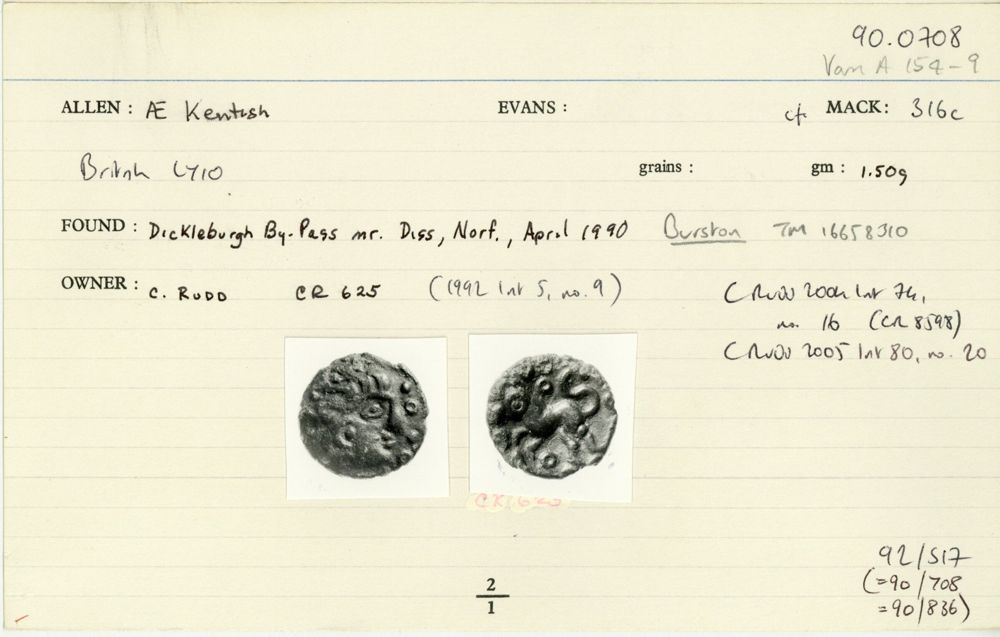 90.0708
Van A 154-9
ALLEN : Æ Kentish EVANS : cf. MACK: 316c
British LY10 grains : gm : 1.50g
FOUND : Dickleburgh By-Pass nr. Diss, Norf., April 1990 Burston TM 16658310
OWNER : C. RUDD CR 625 (1992 list 5, no. 9)
C Rudd 2004 list 74,
no. 16 (CR 8598)
C Rudd 2005 list 80, no. 20
CR 625
2
1
92/517
(=90/708
=90/836)